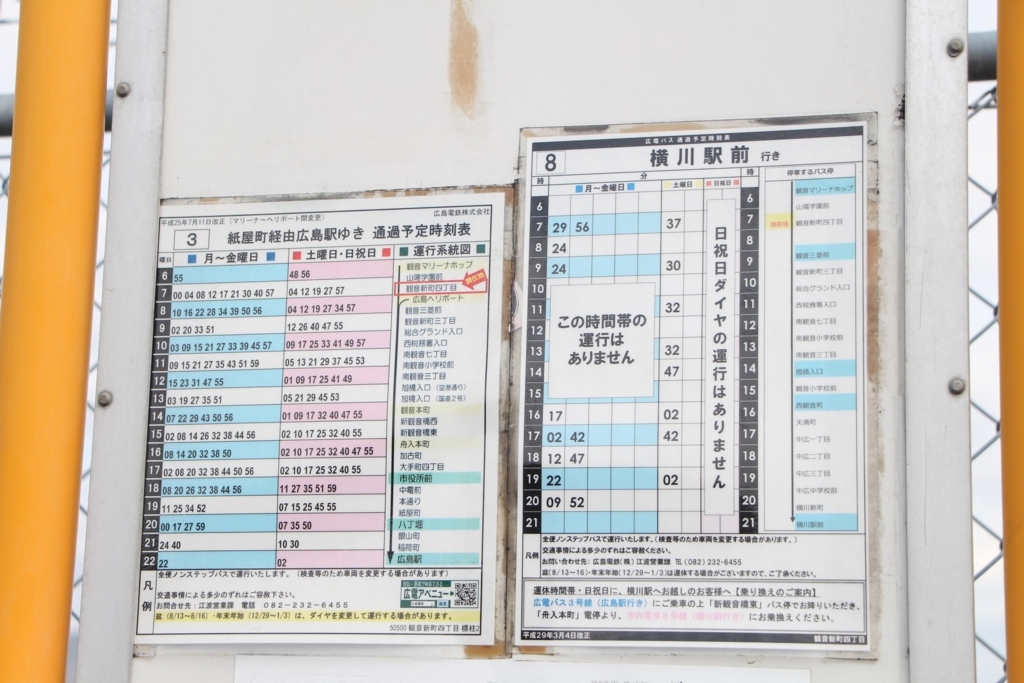 平成25年7月11日改正(マリーナ~ヘリポート間変更)
広島電鉄株式会社
3 紙屋町経由広島駅ゆき 通過予定時刻表
曜日 月~金曜日 土曜日・日祝日 運行系統図
6 55 48 56
7 00 04 08 12 17 21 30 40 57 04 12 19 27 57
8 10 16 22 28 34 39 50 56 04 12 19 27 34 57
9 02 20 33 51 12 26 40 47 55
10 03 09 15 21 27 33 39 45 57 09 17 25 33 41 49 57
11 09 15 21 27 35 43 51 59 05 13 21 29 37 45 53
12 15 23 31 47 55 01 09 17 25 41 49
13 03 19 27 35 51 05 21 29 45 53
14 07 22 29 43 50 56 01 09 17 32 40 47 55
15 02 08 14 26 32 38 44 56 02 10 17 25 32 40 55
16 08 14 20 32 38 50 02 10 17 25 32 40 47 55
17 02 08 20 32 38 44 50 56 02 10 17 25 32 40 55
18 08 20 26 32 38 44 56 11 27 35 51 59
19 11 25 34 52 07 15 25 45 55
20 00 17 27 59 07 35 50
21 24 40 10 30
22 22 02
観音マリーナホップ
山陽学園前
観音新町四丁目 現在地
広島ヘリポート
観音三菱前
観音新町三丁目
総合グランド入口
西税務署入口
南観音七丁目
南観音小学校前
南観音三丁目
旭橋入口(空港通り)
旭橋入口(国道2号)
観音本町
新観音橋西
新観音橋東
舟入本町
加古町
大手町四丁目
市役所前
中電前
本通り
紙屋町
八丁堀
銀山町
稲荷町
広島駅
凡例
全便ノンステップバスで運行いたします。(検査等のため車両を変更する場合があります)
交通事情による多少のずれはご容赦下さい。
お問合せ先:江波営業課 電話 082-232-6455
盆(8/13~8/16)・年末年始(12/29~1/3)は、ダイヤを変更して運行する場合があります。
広電アベニュー
50500 観音新町四丁目 標柱2
広電バス 通過予定時刻表
8 横川駅前 行き
時 分 時 停車するバス停
月~金曜日 土曜日 日祝日
6 6
7 29 56 37 7
8 24 8
9 24 30 9
10 10
11 32 11
12 12
13 32 13
14 47 14
15 15
16 17 02 16
17 02 42 42 17
18 12 47 18
19 22 02 19
20 09 52 20
21 21
この時間帯の
運行は
ありません
日祝日ダイヤの運行はありません
観音マリーナホップ
山陽学園前
現在地 観音新町四丁目
観音三菱前
観音新町三丁目
総合グランド入口
西税務署入口
南観音七丁目
南観音小学校前
南観音三丁目
旭橋入口
観音小学校前
西観音町
天満町
中広一丁目
中広二丁目
中広三丁目
中広中学校前
横川新町
横川駅前
凡例
全便ノンステップバスで運行いたします。(検査等のため車両を変更する場合があります。)
交通事情による多少のずれはご容赦ください。
お問い合わせ先:広島電鉄(株)江波営業課 TEL(082)232-6455
盆(8/13~16)・年末年始(12/29~1/3)は運休する場合がございますので、ご了承ください。
運休時間帯・日祝日に、横川駅へお越しのお客様へ【乗り換えのご案内】
広電バス3号線(広島駅行き)にご乗車の上「新観音橋東」バス停でお降りいただき、
「舟入本町」電停より、市内電車8号線(横川駅行き)にお乗換えください。
平成29年3月4日改正
観音新町四丁目